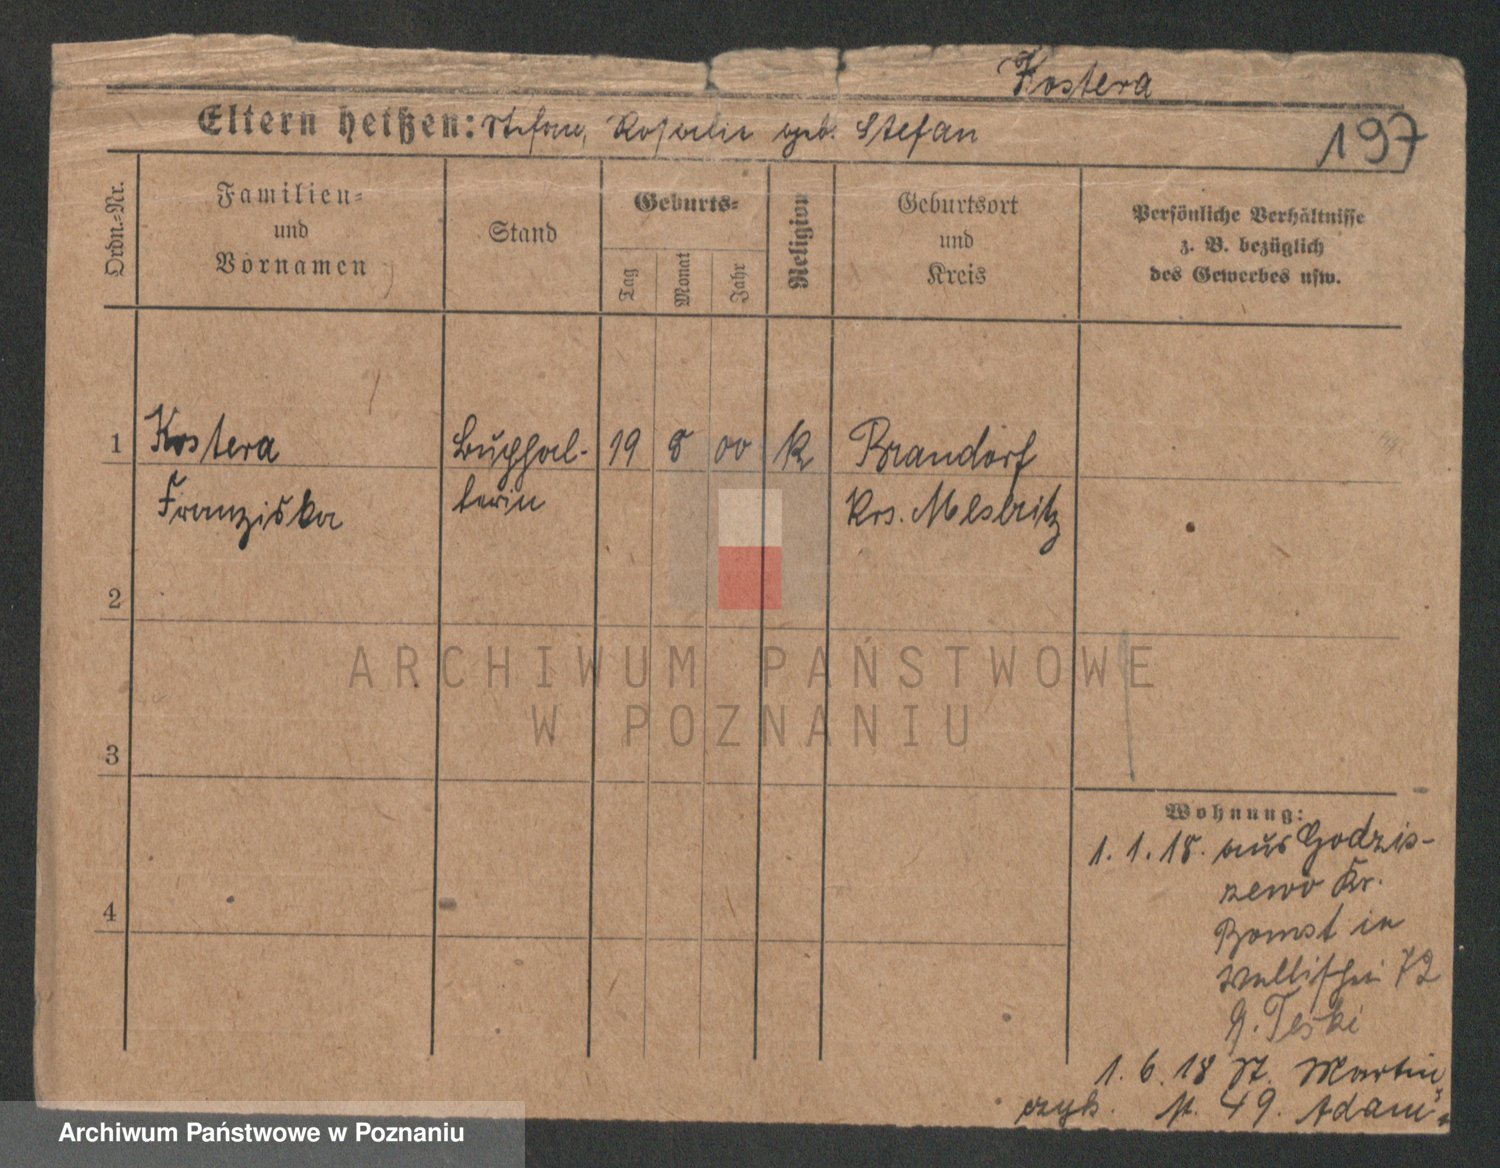 Kostera
Eltern heißen: Stefan, Rosalie geb. Stefan
197
Ordn.=Nr.
Familien=
und
Vornamen
Stand
Geburts=
Tag
Monat
Jahr
Religion
Geburtsort
und
Kreis
Persönliche Verhältnisse
z. B. bezüglich
des Gewerbes usw.
1 Kostera Buchhal- 19 8 00 k Brandorf
Franziska terin Krs. Meseritz
2
3
4
ARCHIWUM PAŃSTWOWE
W POZNANIU
Wohnung:
1.1.18. aus Godzis-
zewo Kr.
Bomst in
Wallischei 72
Teski
1.6.18 St. Martin
49. Adam-
czyk.
Archiwum Państwowe w Poznaniu